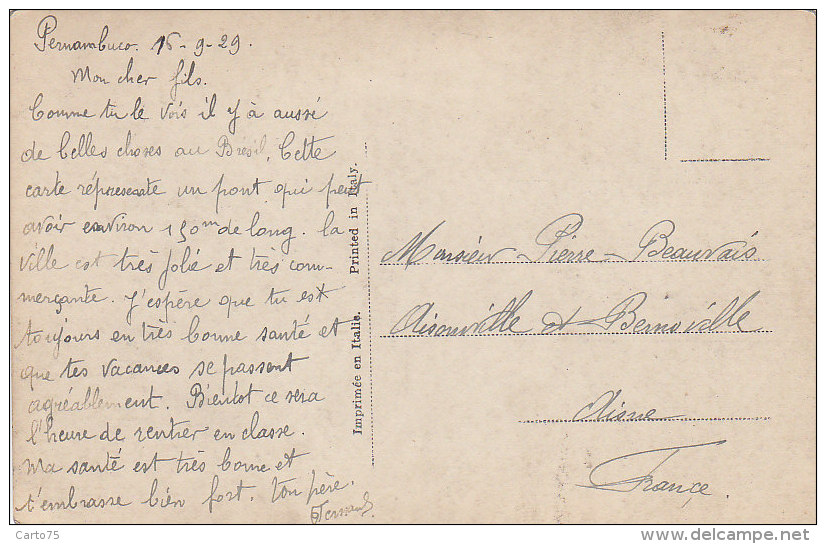 Pernambuco. 16-9-29.
Mon cher fils.
Comme tu le vois il y à aussé
de belles choses au Brésil, Cette
carte réprresente un pont qui peut
avoir environ 150m de long. la
ville est très jolié et très com-
merçante. J'espère que tu est
toujours en très bonne santé et
que tes vacances se passent
agréablement. Bientot ce sera
l'heure de rentrer en classe.
Ma santé est très bonne et
t'embrasse bien fort. ton père.
Fernand.
Imprimée en Italie. Printed in Italy.
Monsieur Pierre Beauvais
Aisonville et Bernoville
Aisne
France.
Carto75
delcampe.net